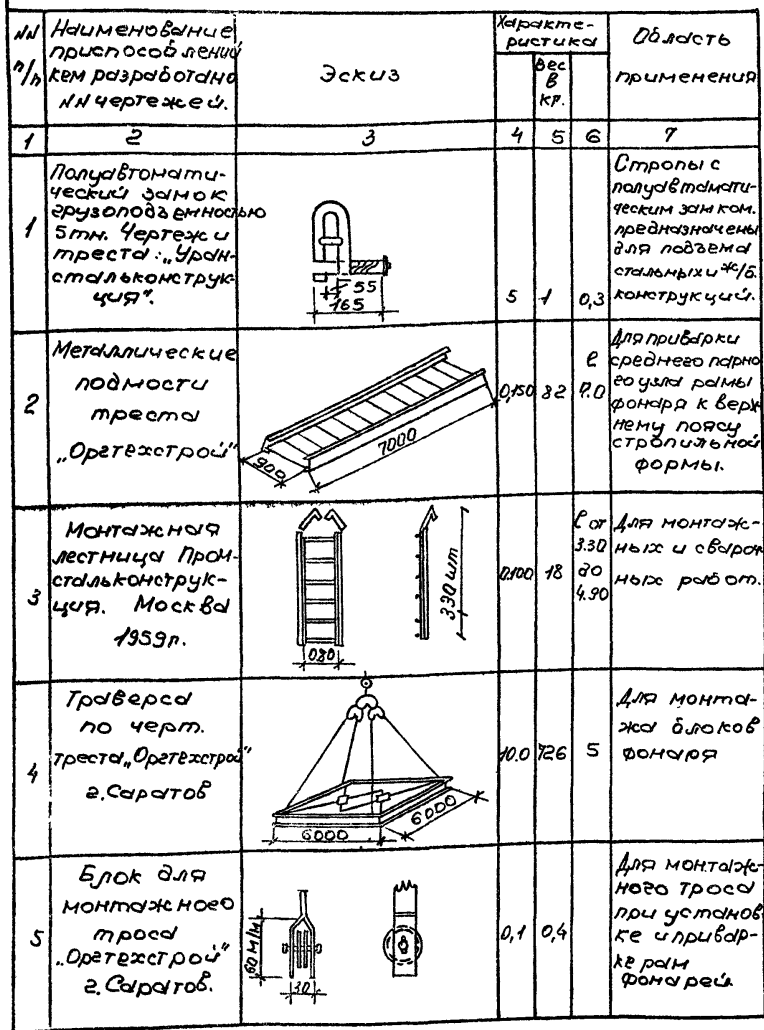 NN
п/п
Наименование
приспособлений
кем разработано
NN чертежей.
Эскиз
Характе-
ристика
Вес
в
кг.
Область
применения
1 2 3 4 5 6 7
1
Полуавтомати-
ческий замок
грузоподъемностью
5тн. Чертежи
треста: „Урал-
стальконструк-
ция".
55
165
5 1 0,3
Стропы с
полуавтомати-
ческим замком.
предназначены
для подъема
стальных и ж/б.
конструкций.
2
Металлические
подмости
треста
„Оргтехстрой"
900
7000
0,150 82
ℓ
7.0
Для приварки
среднего парно
го узла рамы
фонаря к верх
нему поясу
стропильной
формы.
3
Монтажная
лестница Пром-
стальконструк-
ция. Москва
1959г.
080
330 шт
0.100 18
ℓ от
3.30
до
4.90
Для монтаж-
ных и свароч
ных работ.
4
Траверса
по черт.
треста „Оргтехстрой"
г. Саратов
6000
6000
10.0 726 5
Для монта-
жа блоков
фонаря
5
Блок для
монтажного
троса
„Оргтехстрой"
г. Саратов.
60 м/м
30
0,1 0,4
Для монтаж-
ного троса
при установ
ке и привар-
ке рам
фонарей.